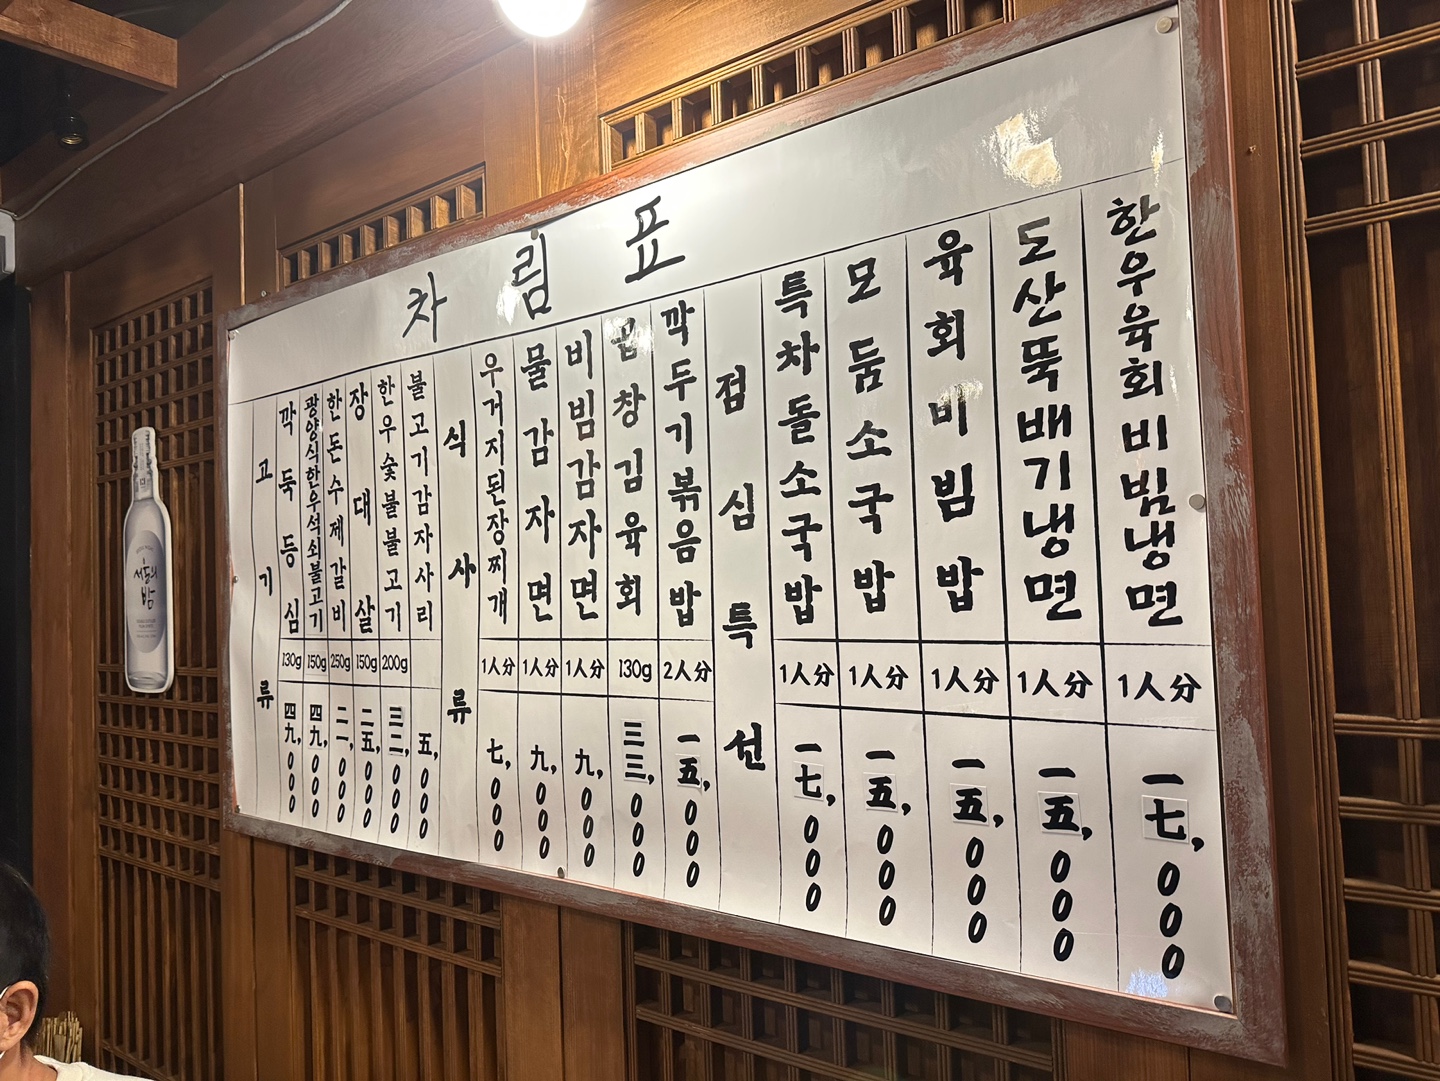 차림표
고기류
깍둑등심 130g 四九,000
광양식한우석쇠불고기 150g 四九,000
한돈수제갈비 250g 二二,000
장대살 150g 二五,000
한우숯불불고기 200g 三二,000
불고기감자사리 五,000
식사류
우거지된장찌개 1人分 七,000
물감자면 1人分 九,000
비빔감자면 1人分 九,000
곱창김육회 130g 三三,000
깍두기볶음밥 2人分 一五,000
점심특선
특차돌소국밥 1人分 一七,000
모둠소국밥 1人分 一五,000
육회비빔밥 1人分 一五,000
도산뚝배기냉면 1人分 一五,000
한우육회비빔냉면 1人分 一七,000
서울의
밤